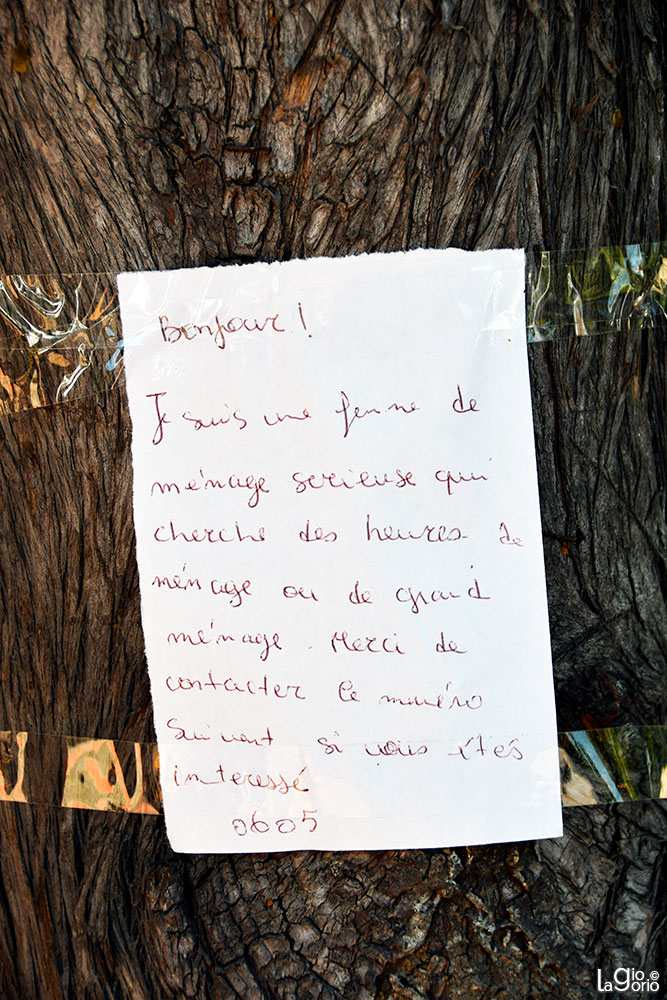 Bonjour !
Je suis une femme de
ménage serieuse qui
cherche des heures de
ménage ou de grand
ménage. Merci de
contacter le numéro
suivant si vous êtes
interessé
0605
Lagio ©
Lagorio